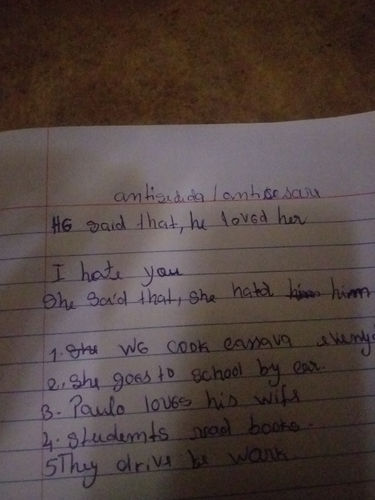 He said that, he loved her
I hate you
She said that, she hated him
1. We cook cassava
2. She goes to school by car.
3. Paulo loves his wife
4. Students read books.
5 They drive to work.